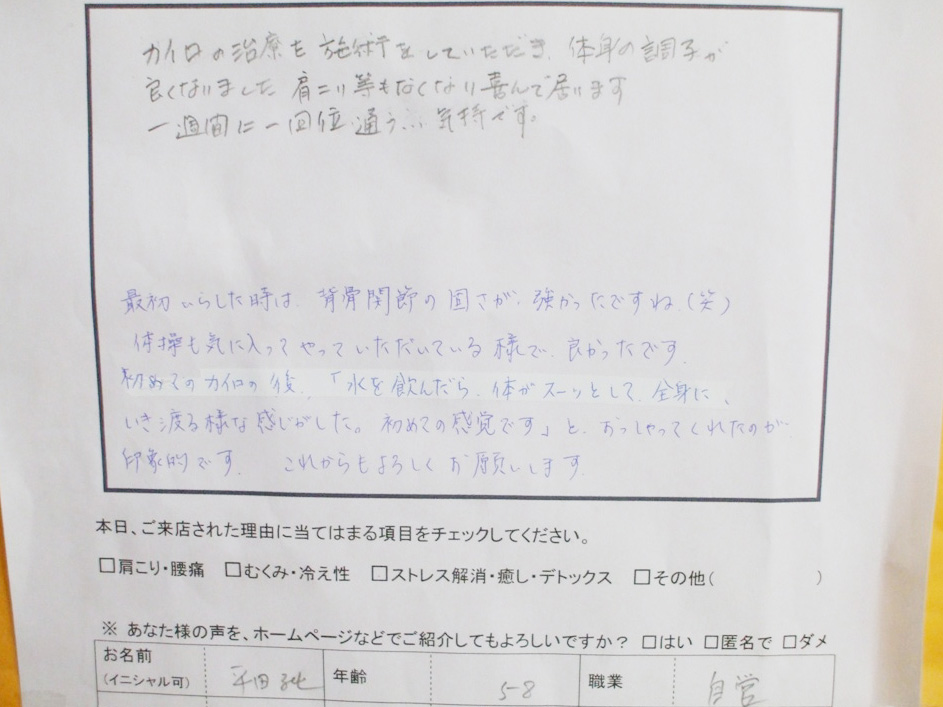 カイロの治療も施術をしていただき、体身の調子が
良くなりました 肩こり等もなくなり喜んで居ります
一週間に一回位 通う 気持です。
最初 いらした時は、背骨関節の固さが、強かったですね(笑)
体操も気に入って やっていただいている 様で、良かったです。
初めてのカイロの後、「水を飲んだら、体がスーッとして、全身に、
いき渡る様な感じがした。初めての感覚です」と、おっしゃってくれたのが、
印象的です。 これからもよろしくお願いします。
本日、ご来店された理由に当てはまる項目をチェックしてください。
□肩こり・腰痛 □むくみ・冷え性 □ストレス解消・癒し・デトックス □その他( )
※ あなた様の声を、ホームページなどでご紹介してもよろしいですか? □はい □匿名で □ダメ
お名前 平田 年齢 58 職業 自営
(イニシャル可)